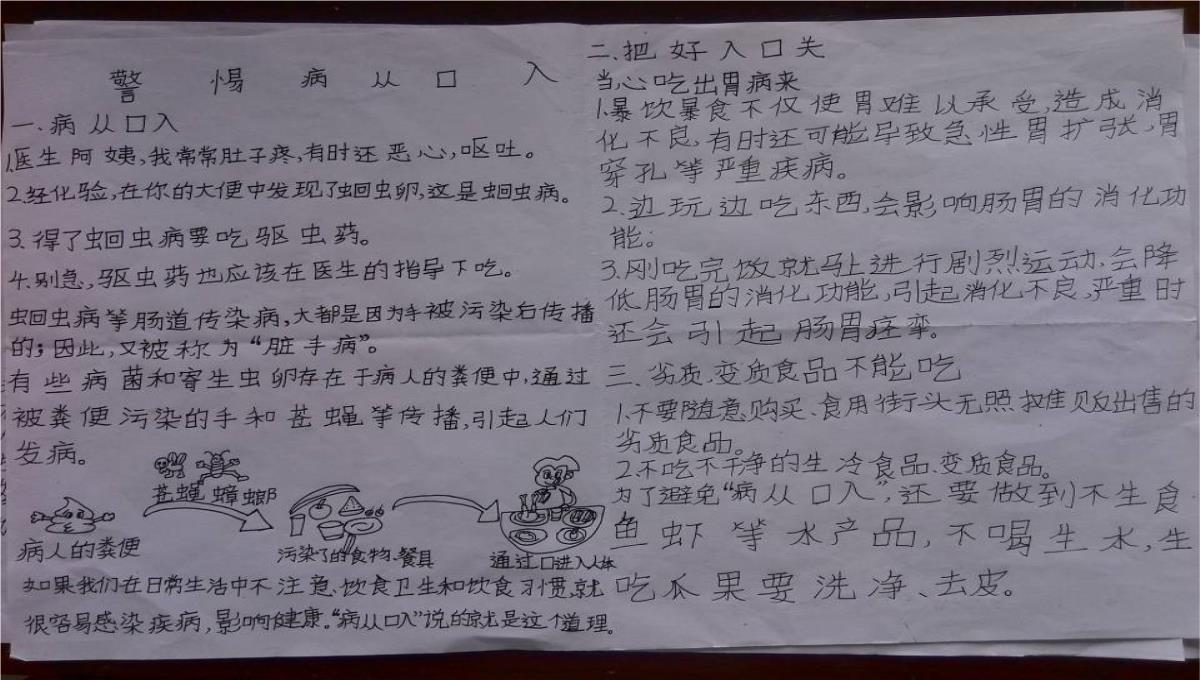 警惕病从口入
一.病从口入
1.医生阿姨,我常常肚子疼,有时还恶心,呕吐。
2.经化验,在你的大便中发现了蛔虫卵,这是蛔虫病。
3.得了蛔虫病要吃驱虫药。
4.别急,驱虫药也应该在医生的指导下吃。
蛔虫病等肠道传染病,大都是因为手被污染后传播
的;因此,又被称为“脏手病”。
有些病菌和寄生虫卵存在于病人的粪便中,通过
被粪便污染的手和苍蝇等传播,引起人们
发病。
苍蝇 蟑螂
病人的粪便
污染了的食物、餐具
通过口进入人体
如果我们在日常生活中不注意、饮食卫生和饮食习惯,就
很容易感染疾病,影响健康。“病从口入”说的就是这个道理。
二.把好入口关
当心吃出胃病来
1.暴饮暴食不仅使胃难以承受,造成消
化不良,有时还可能导致急性胃扩张,胃
穿孔等严重疾病。
2.边玩边吃东西,会影响肠胃的消化功
能。
3.刚吃完饭就马上进行剧烈运动.会降
低肠胃的消化功能,引起消化不良,严重时
还会引起肠胃痉挛。
三.劣质、变质食品不能吃
1.不要随意购买、食用街头无照摊贩出售的
劣质食品。
2.不吃不干净的生冷食品、变质食品。
为了避免“病从口入”,还要做到不生食
鱼虾等水产品,不喝生水,生
吃瓜果要洗净、去皮。